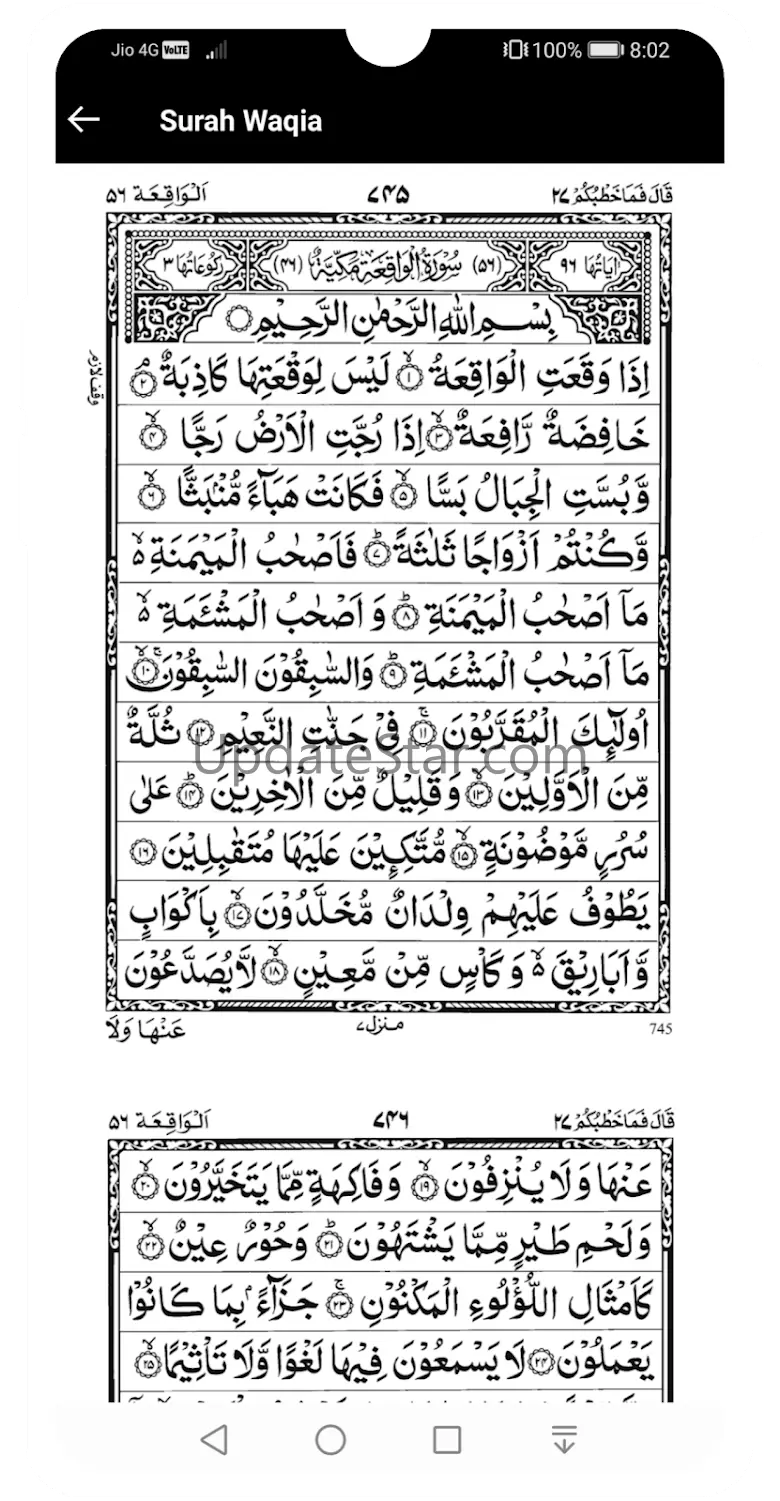 Jio 4G VoLTE 100% 8:02
Surah Waqia
قَالَ فَمَا خَطْبُكُمْ ۲۷ ۷۴۵ اَلْوَاقِعَة ۵۶
اٰيَاتُهَا ۹۶ (۵۶) سُوْرَةُ الْوَاقِعَةِ مَكِّيَّةٌ (۴۶) رُكُوْعَاتُهَا ۳
بِسْمِ اللّٰهِ الرَّحْمٰنِ الرَّحِيْمِ
اِذَا وَقَعَتِ الْوَاقِعَةُ ۙ﴿۱﴾ لَيْسَ لِوَقْعَتِهَا كَاذِبَةٌ ۘ﴿۲﴾
وقف لازم
خَافِضَةٌ رَّافِعَةٌ ۙ﴿۳﴾ اِذَا رُجَّتِ الْاَرْضُ رَجًّا ۙ﴿۴﴾
وَّبُسَّتِ الْجِبَالُ بَسًّا ۙ﴿۵﴾ فَكَانَتْ هَبَآءً مُّنْۢبَثًّا ۙ﴿۶﴾
وَّكُنْتُمْ اَزْوَاجًا ثَلٰثَةً ؕ﴿۷﴾ فَاَصْحٰبُ الْمَيْمَنَةِ ۙ۵
مَاۤ اَصْحٰبُ الْمَيْمَنَةِ ؕ﴿۸﴾ وَاَصْحٰبُ الْمَشْـَٔمَةِ ۙ۵
مَاۤ اَصْحٰبُ الْمَشْـَٔمَةِ ؕ﴿۹﴾ وَالسّٰبِقُوْنَ السّٰبِقُوْنَ ۚۙ﴿۱۰﴾
اُولٰٓئِكَ الْمُقَرَّبُوْنَ ۚ﴿۱۱﴾ فِيْ جَنّٰتِ النَّعِيْمِ ﴿۱۲﴾ ثُلَّةٌ
UpdateStar.com
مِّنَ الْاَوَّلِيْنَ ۙ﴿۱۳﴾ وَقَلِيْلٌ مِّنَ الْاٰخِرِيْنَ ؕ﴿۱۴﴾ عَلٰى
سُرُرٍ مَّوْضُوْنَةٍ ۙ﴿۱۵﴾ مُّتَّكِـِٕيْنَ عَلَيْهَا مُتَقٰبِلِيْنَ ﴿۱۶﴾
يَطُوْفُ عَلَيْهِمْ وِلْدَانٌ مُّخَلَّدُوْنَ ۙ﴿۱۷﴾ بِاَكْوَابٍ
وَّاَبَارِيْقَ ۙ۵ وَكَاْسٍ مِّنْ مَّعِيْنٍ ۙ﴿۱۸﴾ لَّا يُصَدَّعُوْنَ
عَنْهَا وَلَا منزل ۷ 745
قَالَ فَمَا خَطْبُكُمْ ۲۷ ۷۴۶ اَلْوَاقِعَة ۵۶
عَنْهَا وَلَا يُنْزِفُوْنَ ۙ﴿۱۹﴾ وَفَاكِهَةٍ مِّمَّا يَتَخَيَّرُوْنَ ۙ﴿۲۰﴾
وَلَحْمِ طَيْرٍ مِّمَّا يَشْتَهُوْنَ ؕ﴿۲۱﴾ وَحُوْرٌ عِيْنٌ ۙ﴿۲۲﴾
كَاَمْثَالِ اللُّؤْلُوءِ الْمَكْنُوْنِ ۚ﴿۲۳﴾ جَزَآءًۢ بِمَا كَانُوْا
يَعْمَلُوْنَ ﴿۲۴﴾ لَا يَسْمَعُوْنَ فِيْهَا لَغْوًا وَّلَا تَاْثِيْمًا ۙ﴿۲۵﴾